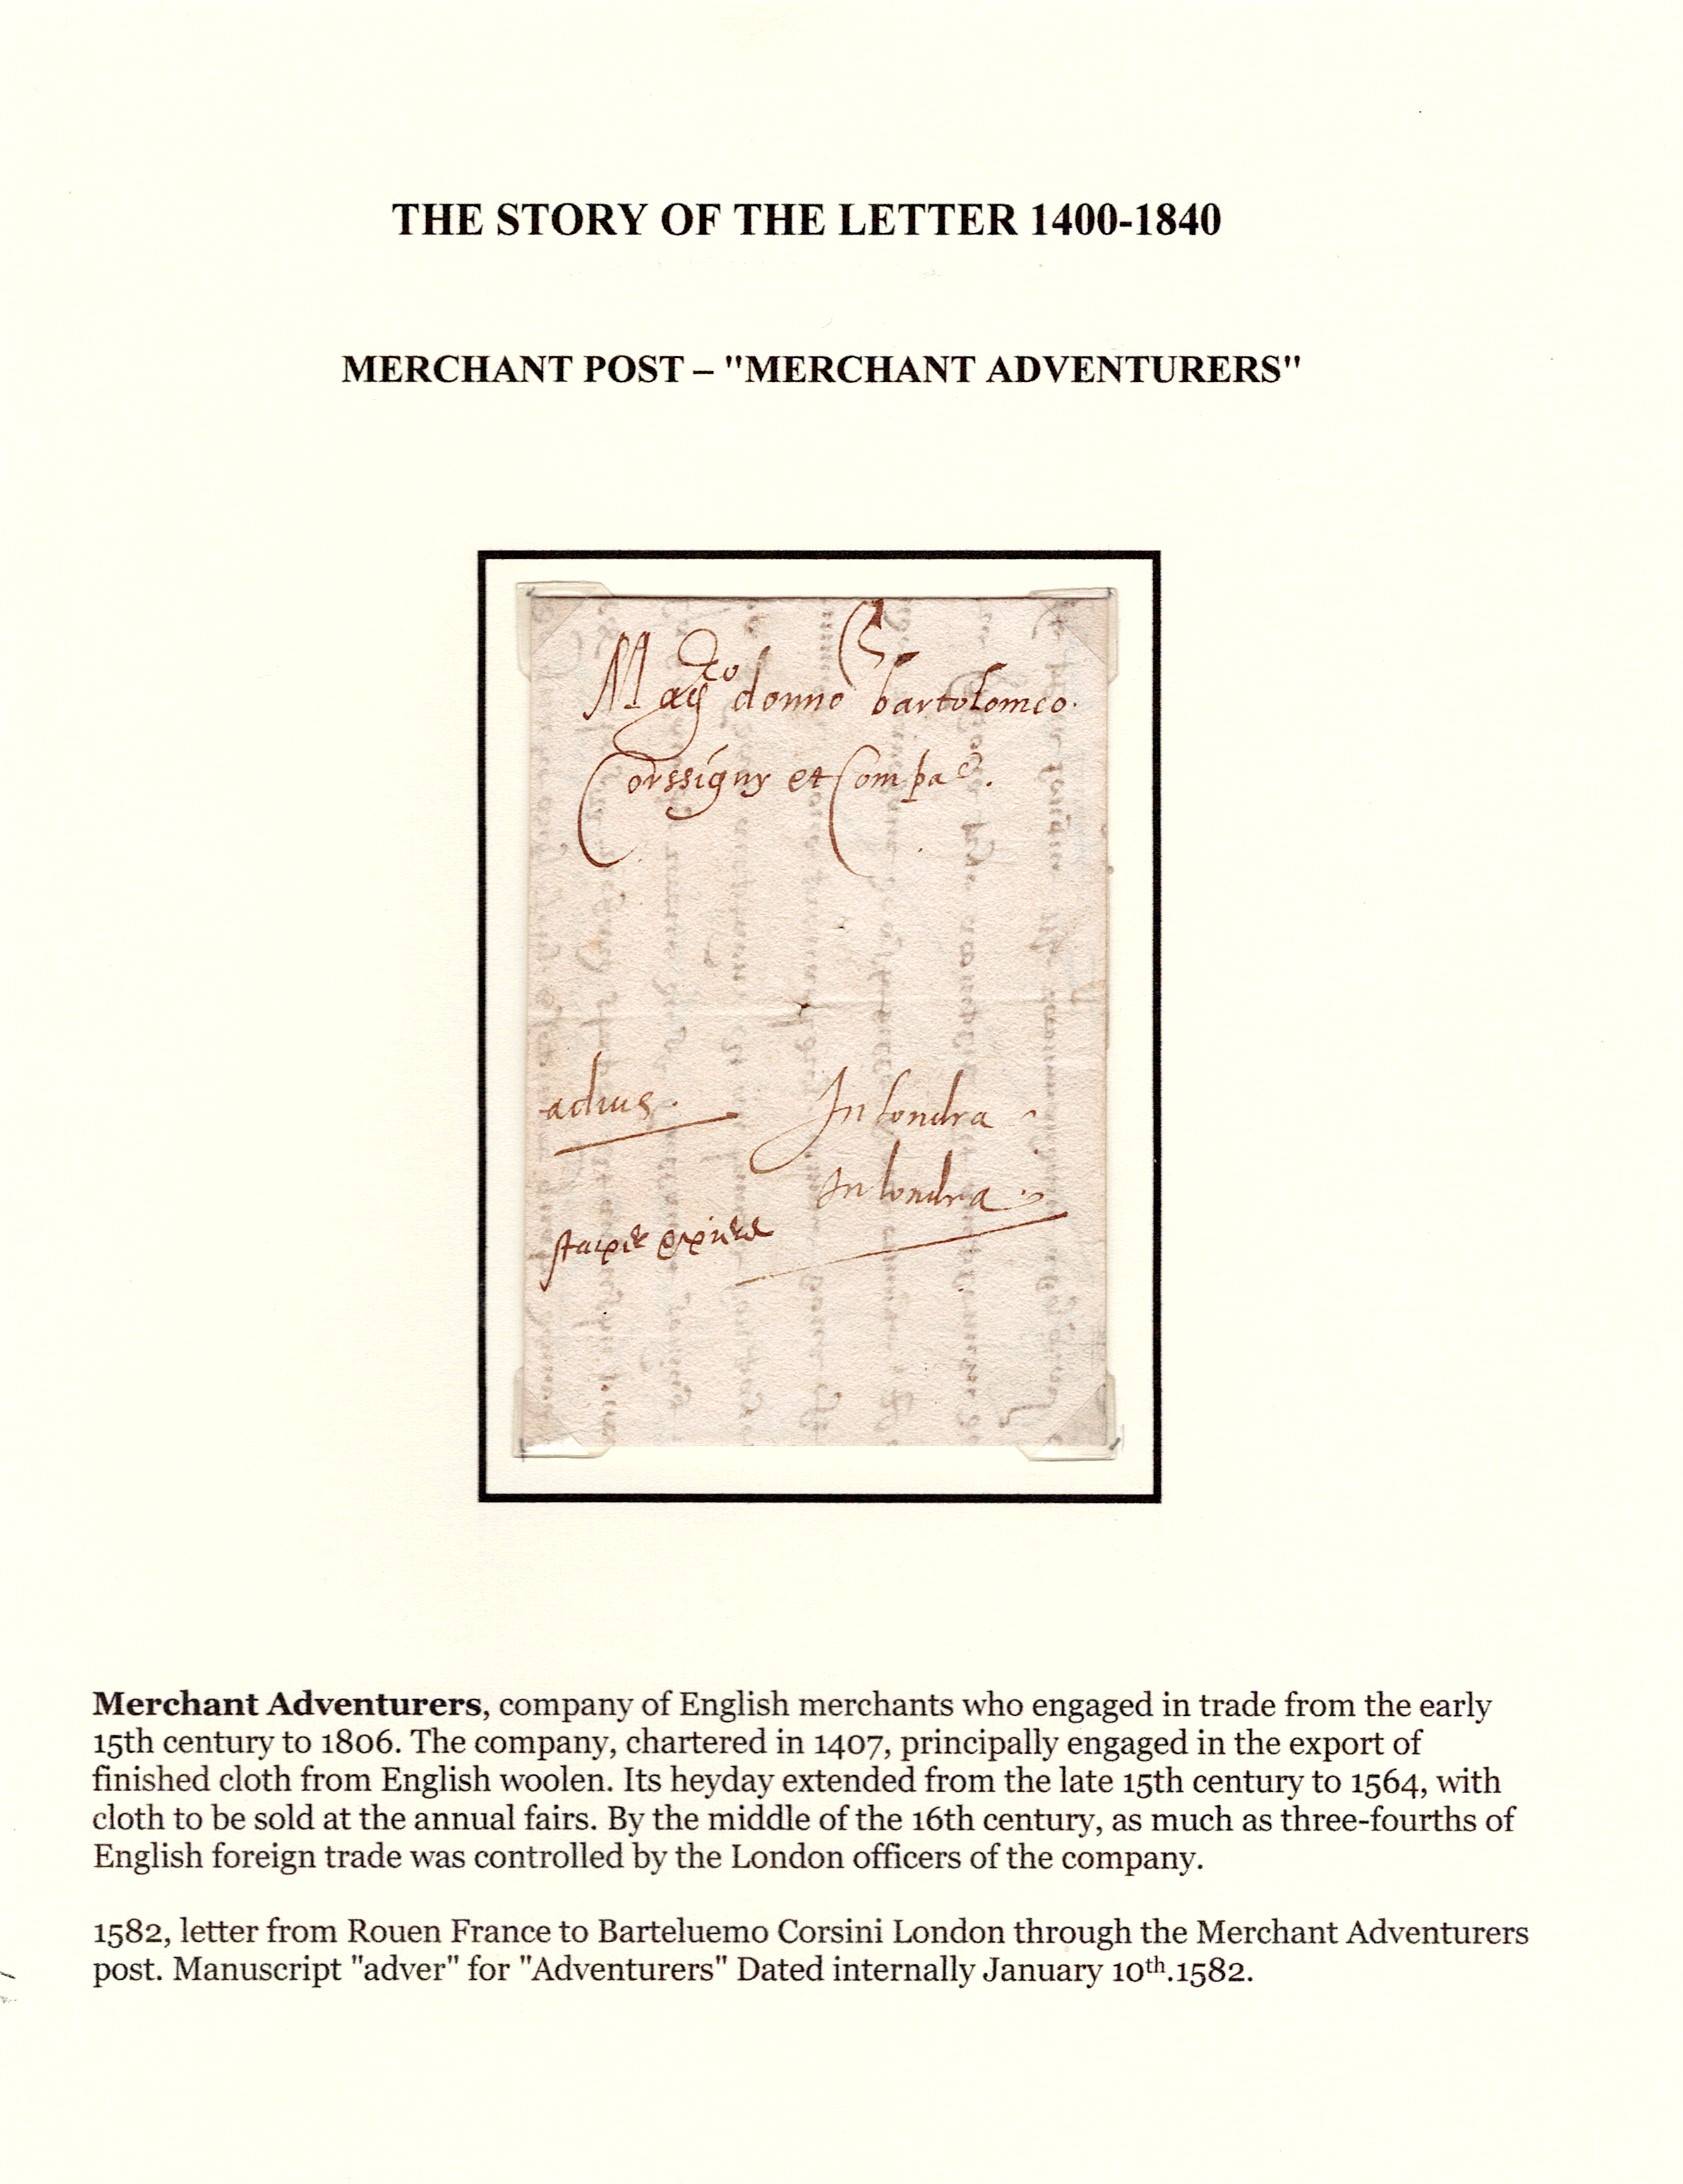 THE STORY OF THE LETTER 1400-1840
MERCHANT POST – "MERCHANT ADVENTURERS"
Mag^co donno bartolomeo.
Corssigny et Compa^e.
In londra
In londra
Merchant Adventurers, company of English merchants who engaged in trade from the early
15th century to 1806. The company, chartered in 1407, principally engaged in the export of
finished cloth from English woolen. Its heyday extended from the late 15th century to 1564, with
cloth to be sold at the annual fairs. By the middle of the 16th century, as much as three-fourths of
English foreign trade was controlled by the London officers of the company.
1582, letter from Rouen France to Barteluemo Corsini London through the Merchant Adventurers
post. Manuscript "adver" for "Adventurers" Dated internally January 10th.1582.